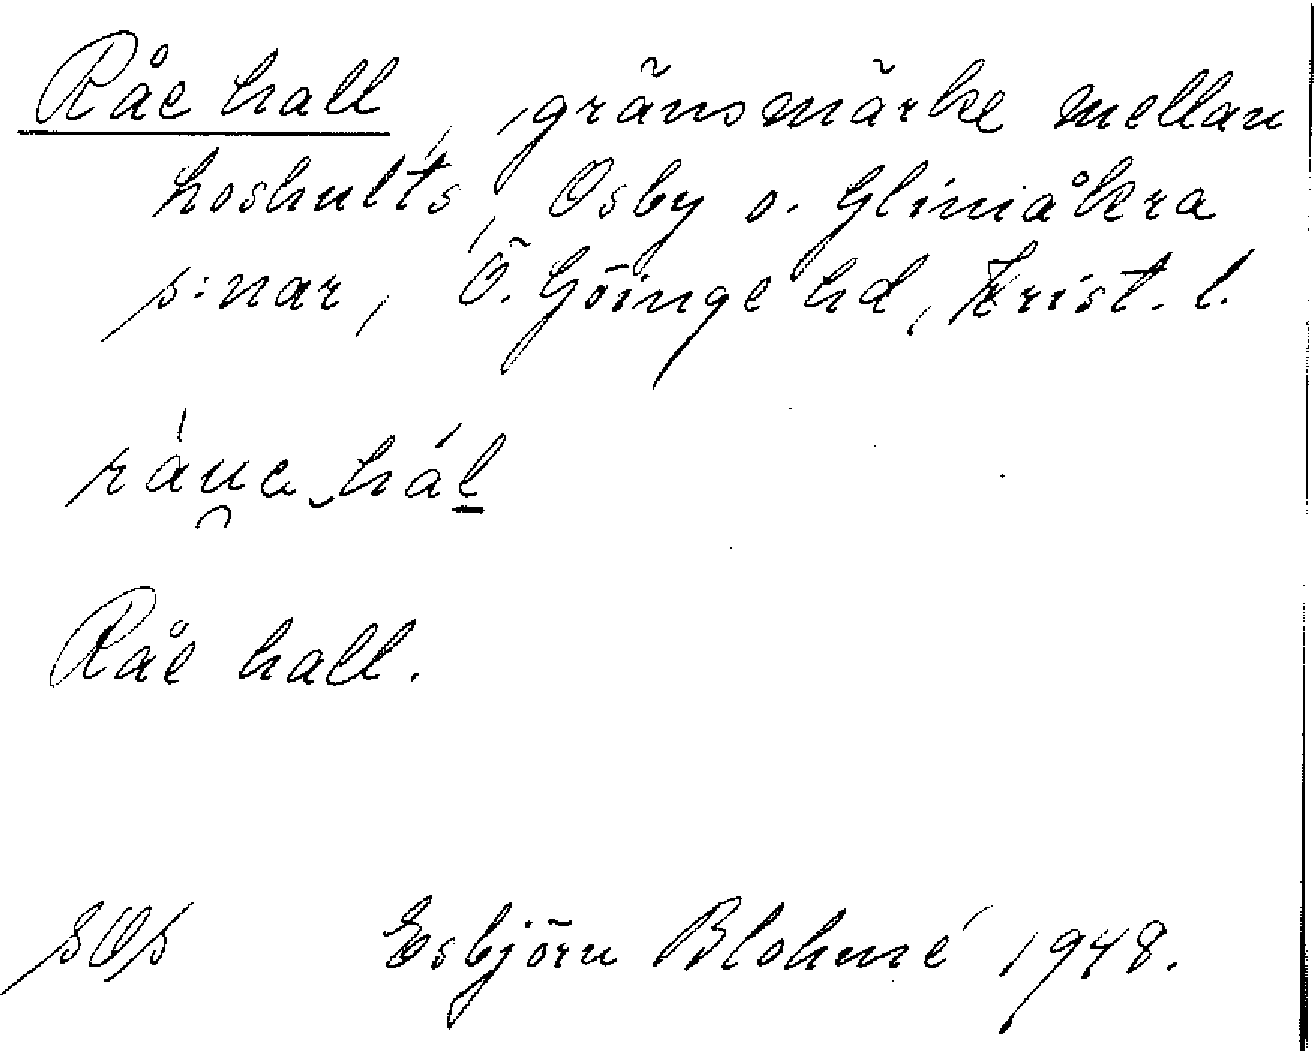 Råe hall, gränsmärke mellan
Loshults, Osby o. Glimåkra
s:nar, Ö. Göinge hd, Krist. l.
Råe hall.
Esbjörn Blohmé 1948.